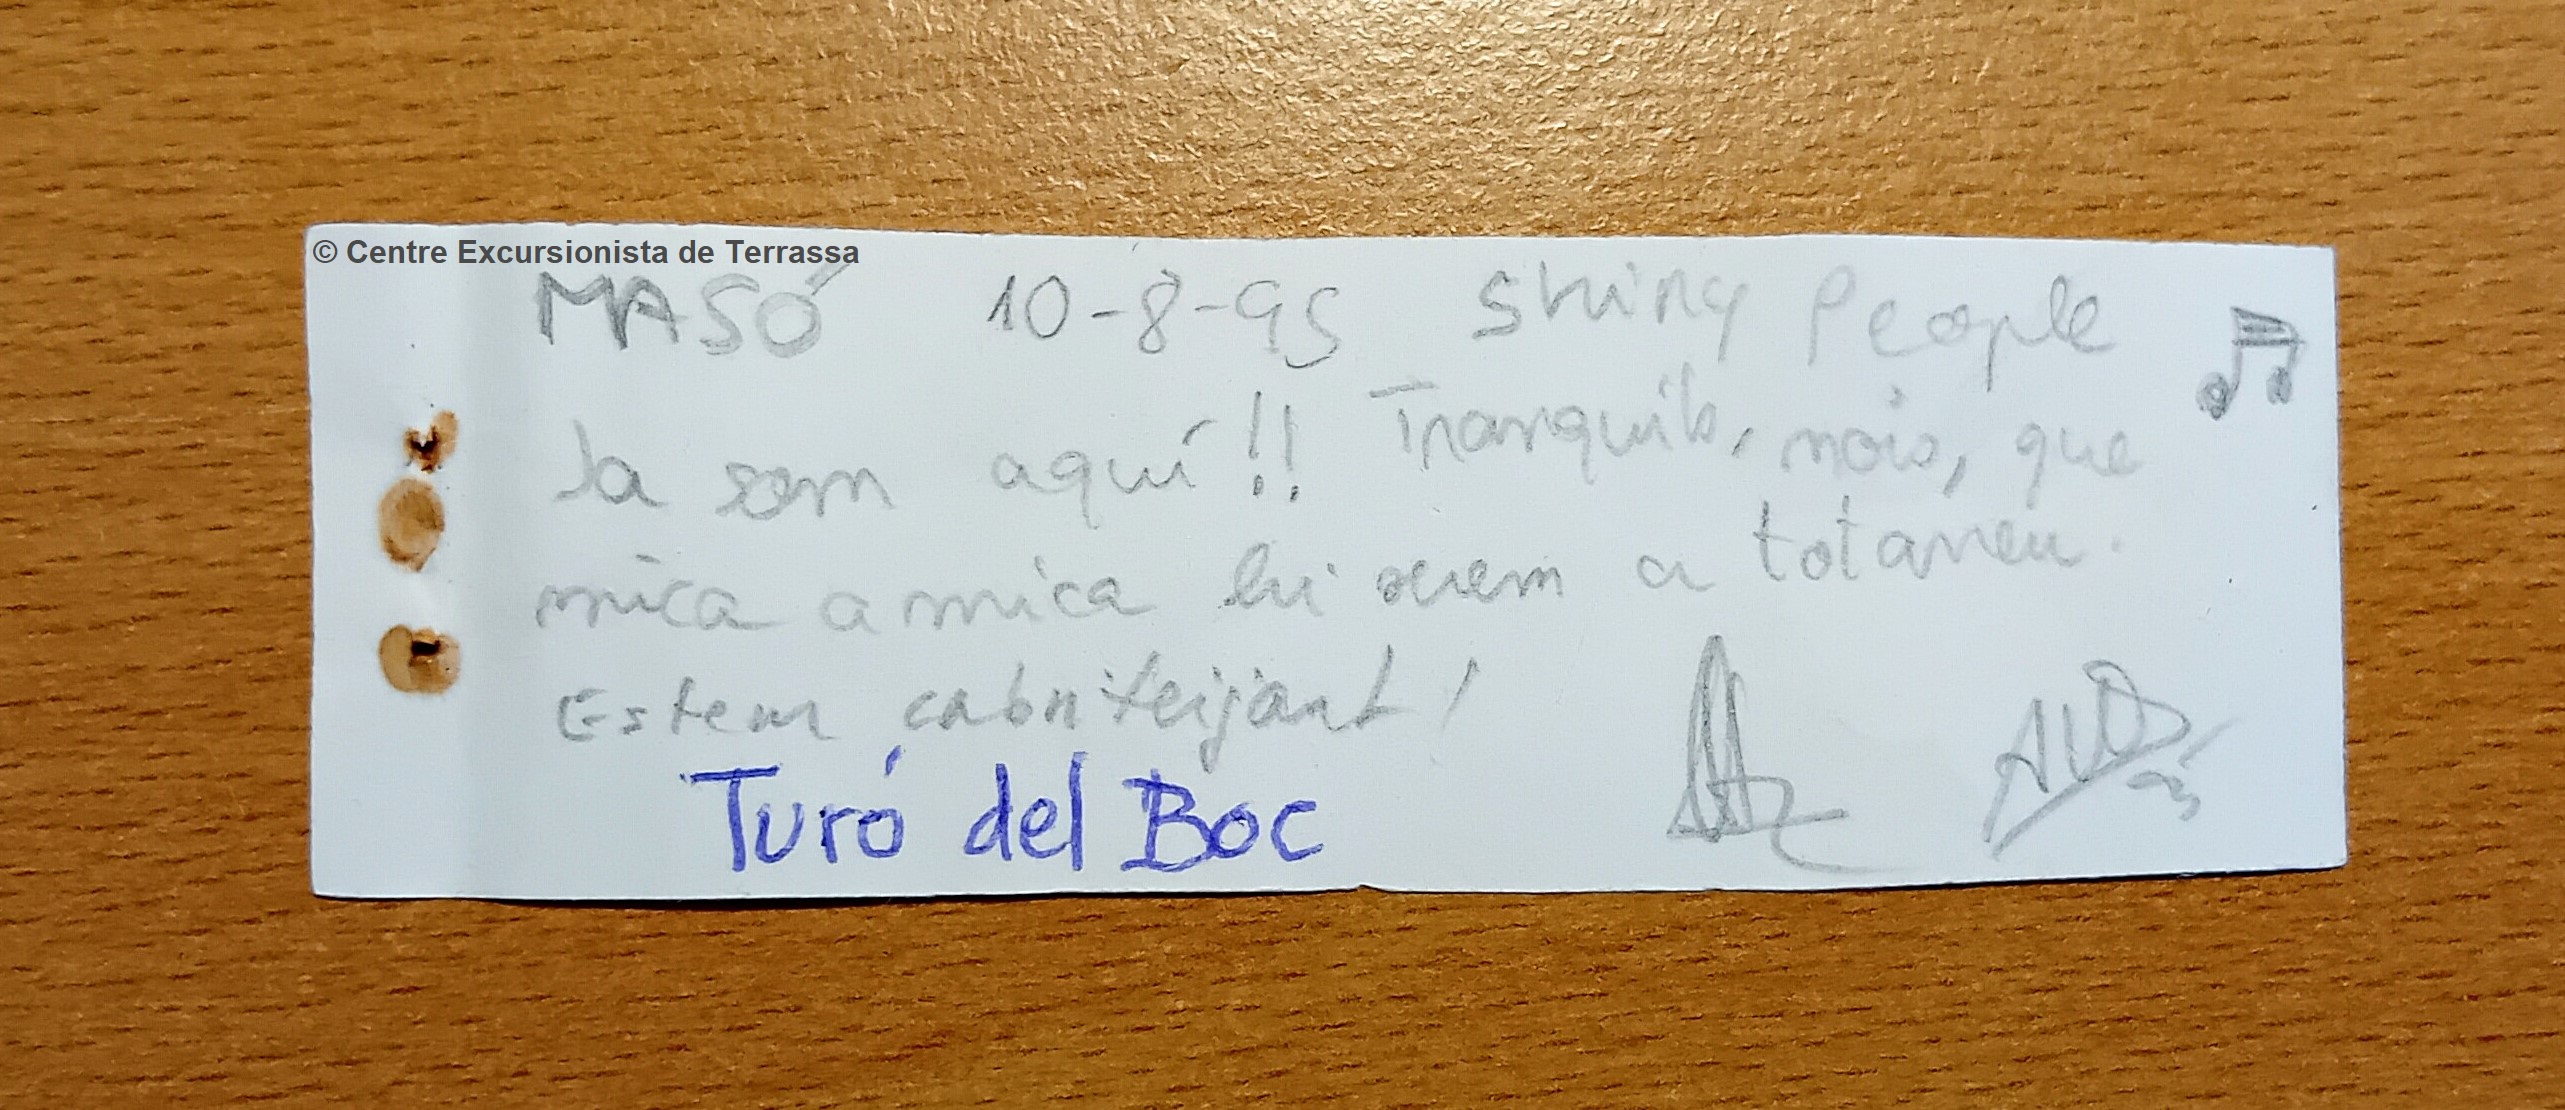 © Centre Excursionista de Terrassa
MASÓ 10-8-95 Shiny People
Ja som aquí!! Tranquils, nois, que
mica a mica hi serem a tot arreu.
Estem cabriteijant!
Turó del Boc